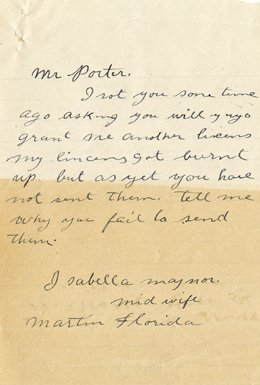 Mr Porter.
I rot you some time
ago asking you will you
grant me another licens
my lincens got burnt
up. but as yet you have
not sent them. tell me
why you fail to send
them.
Isabella maynor.
mid wife
Martin Florida